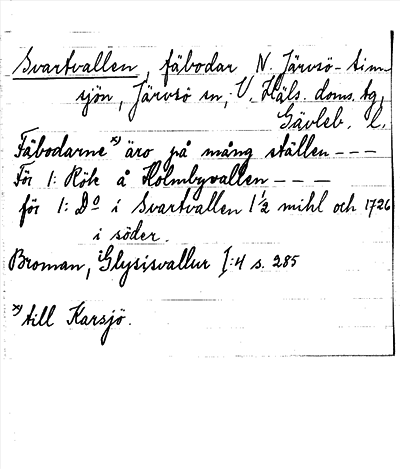 Svartvallen, fäbodar N. Järvsö-tinn-
sjön, Järvsö sn, V. Häls. doms. tg,
Gävleb. l.
Fäbodarne x) äro på mång ställen - - -
För 1: Rök å Holmbyvallen - - - -
för 1: Do i Svartvallen 1 1/2 mihl och 1726
i söder.
Broman, Glysisvallur I:4 s. 285
x) till Karsjö.